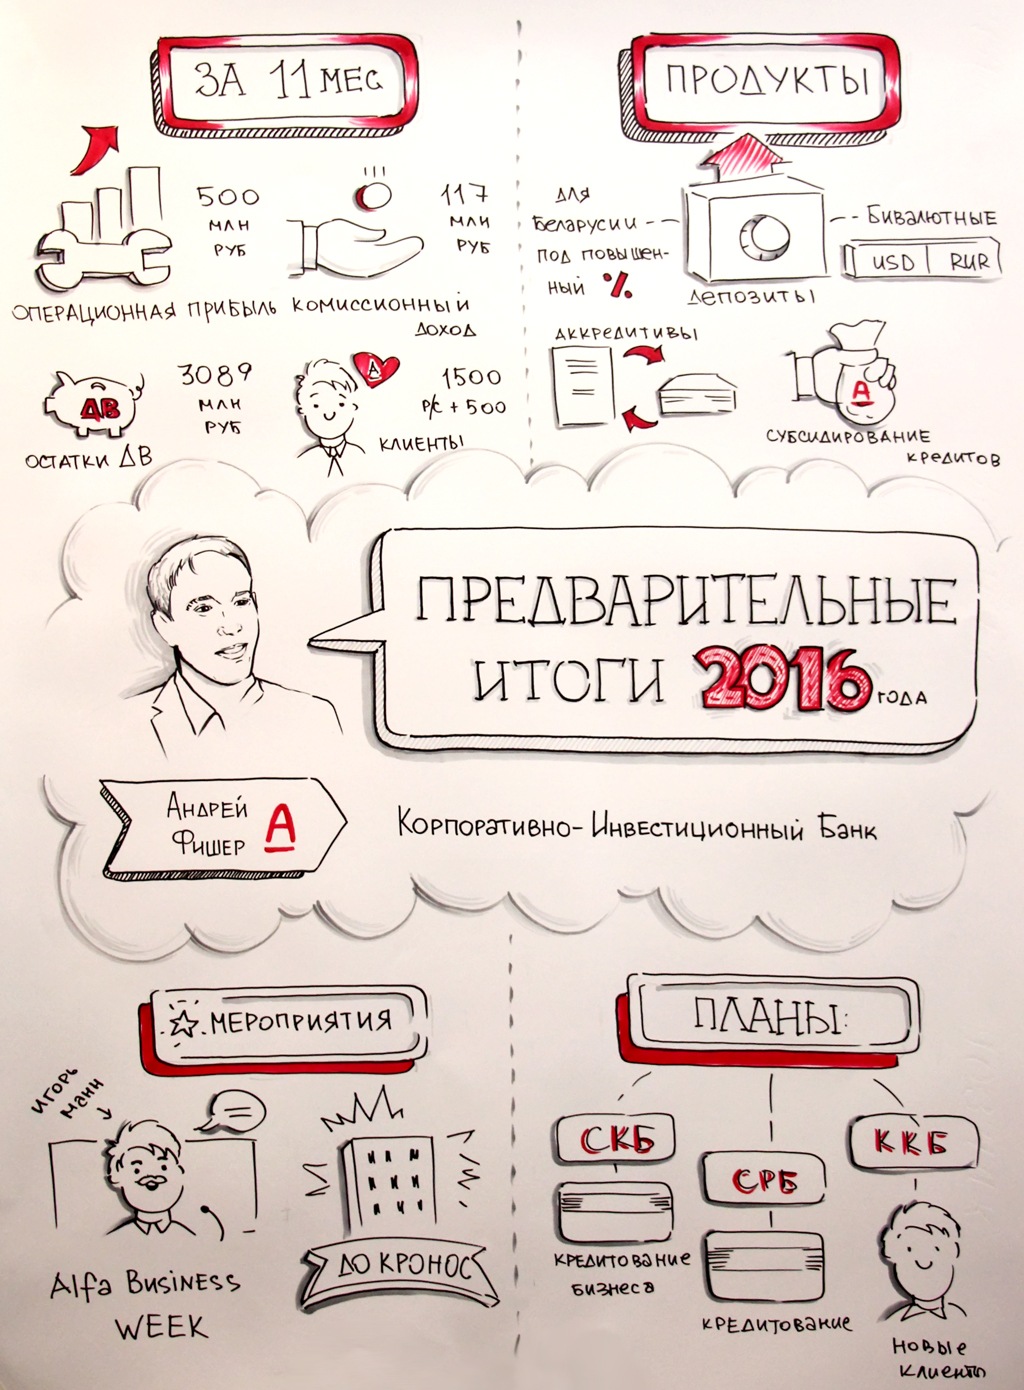 ЗА 11 МЕС
500
МЛН
РУБ
ОПЕРАЦИОННАЯ ПРИБЫЛЬ
117
МЛН
РУБ
КОМИССИОННЫЙ
ДОХОД
ДВ
3089
МЛН
РУБ
ОСТАТКИ ДВ
А
1500
Р/С + 500
КЛИЕНТЫ
ПРОДУКТЫ
ДЛЯ
БЕЛАРУСИИ
ПОД ПОВЫШЕН-
НЫЙ %
ДЕПОЗИТЫ
БИВАЛЮТНЫЕ
USD | RUR
АККРЕДИТИВЫ
А
СУБСИДИРОВАНИЕ
КРЕДИТОВ
ПРЕДВАРИТЕЛЬНЫЕ
ИТОГИ 2016 ГОДА
АНДРЕЙ
ФИШЕР
А
КОРПОРАТИВНО-ИНВЕСТИЦИОННЫЙ БАНК
МЕРОПРИЯТИЯ
ИГОРЬ
МАНН
Alfa BUSINESS
WEEK
ДО КРОНОС
ПЛАНЫ:
СКБ
КРЕДИТОВАНИЕ
БИЗНЕСА
СРБ
КРЕДИТОВАНИЕ
ККБ
НОВЫЕ
КЛИЕНТЫ